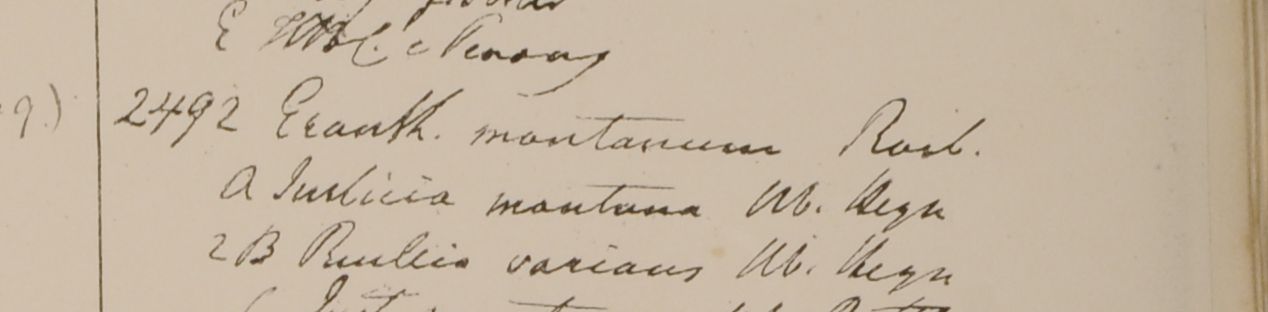 E HBC. e Penang
9.)
2492 Eranth. montanum Roxb.
A Justicia montana Hb. Heyn
2 B Ruellia varians Hb. Heyn